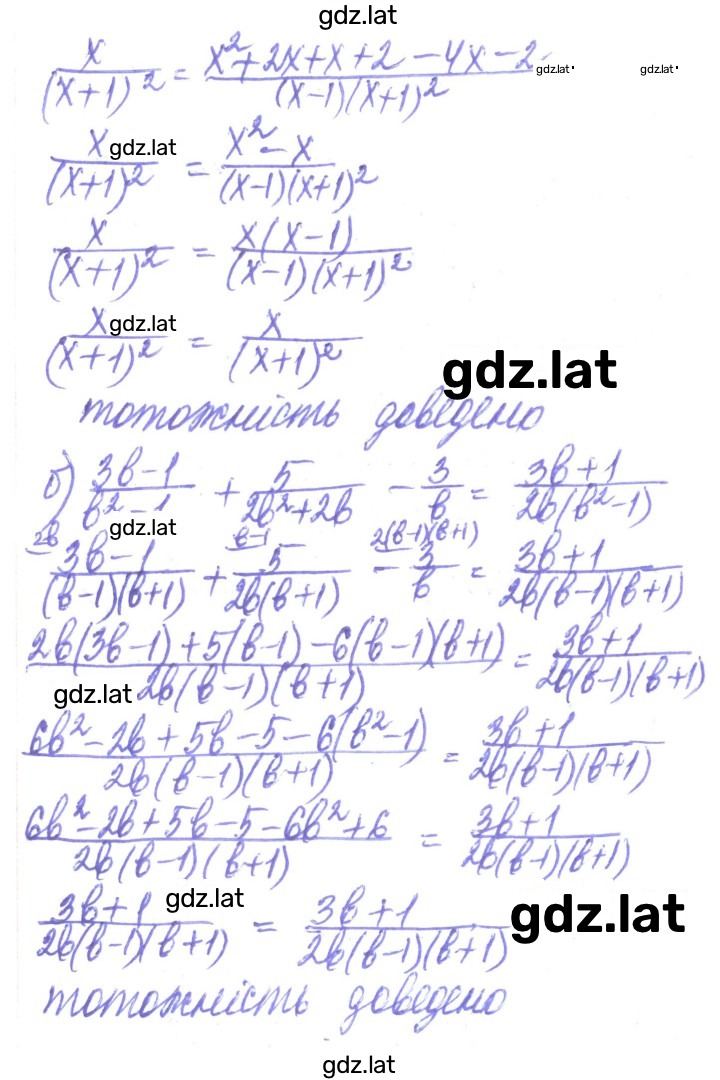 gdz.lat
x/(x+1)² = (x²+2x+x+2-4x-2)/((x-1)(x+1)²) gdz.lat gdz.lat
x/(x+1)² = (x²-x)/((x-1)(x+1)²) gdz.lat
x/(x+1)² = x(x-1)/((x-1)(x+1)²)
x/(x+1)² = x/(x+1)² gdz.lat
gdz.lat
тотожність доведено
б) (3b-1)/(b²-1) + 5/(2b²+2b) - 3/b = (3b+1)/(2b(b²-1))
gdz.lat
2b b-1 2(b-1)(b+1)
(3b-1)/((b-1)(b+1)) + 5/(2b(b+1)) - 3/b = (3b+1)/(2b(b-1)(b+1))
(2b(3b-1)+5(b-1)-6(b-1)(b+1))/(2b(b-1)(b+1)) = (3b+1)/(2b(b-1)(b+1))
gdz.lat
(6b²-2b+5b-5-6(b²-1))/(2b(b-1)(b+1)) = (3b+1)/(2b(b-1)(b+1))
(6b²-2b+5b-5-6b²+6)/(2b(b-1)(b+1)) = (3b+1)/(2b(b-1)(b+1))
(3b+1)/(2b(b-1)(b+1)) = (3b+1)/(2b(b-1)(b+1)) gdz.lat
gdz.lat
тотожність доведено
gdz.lat